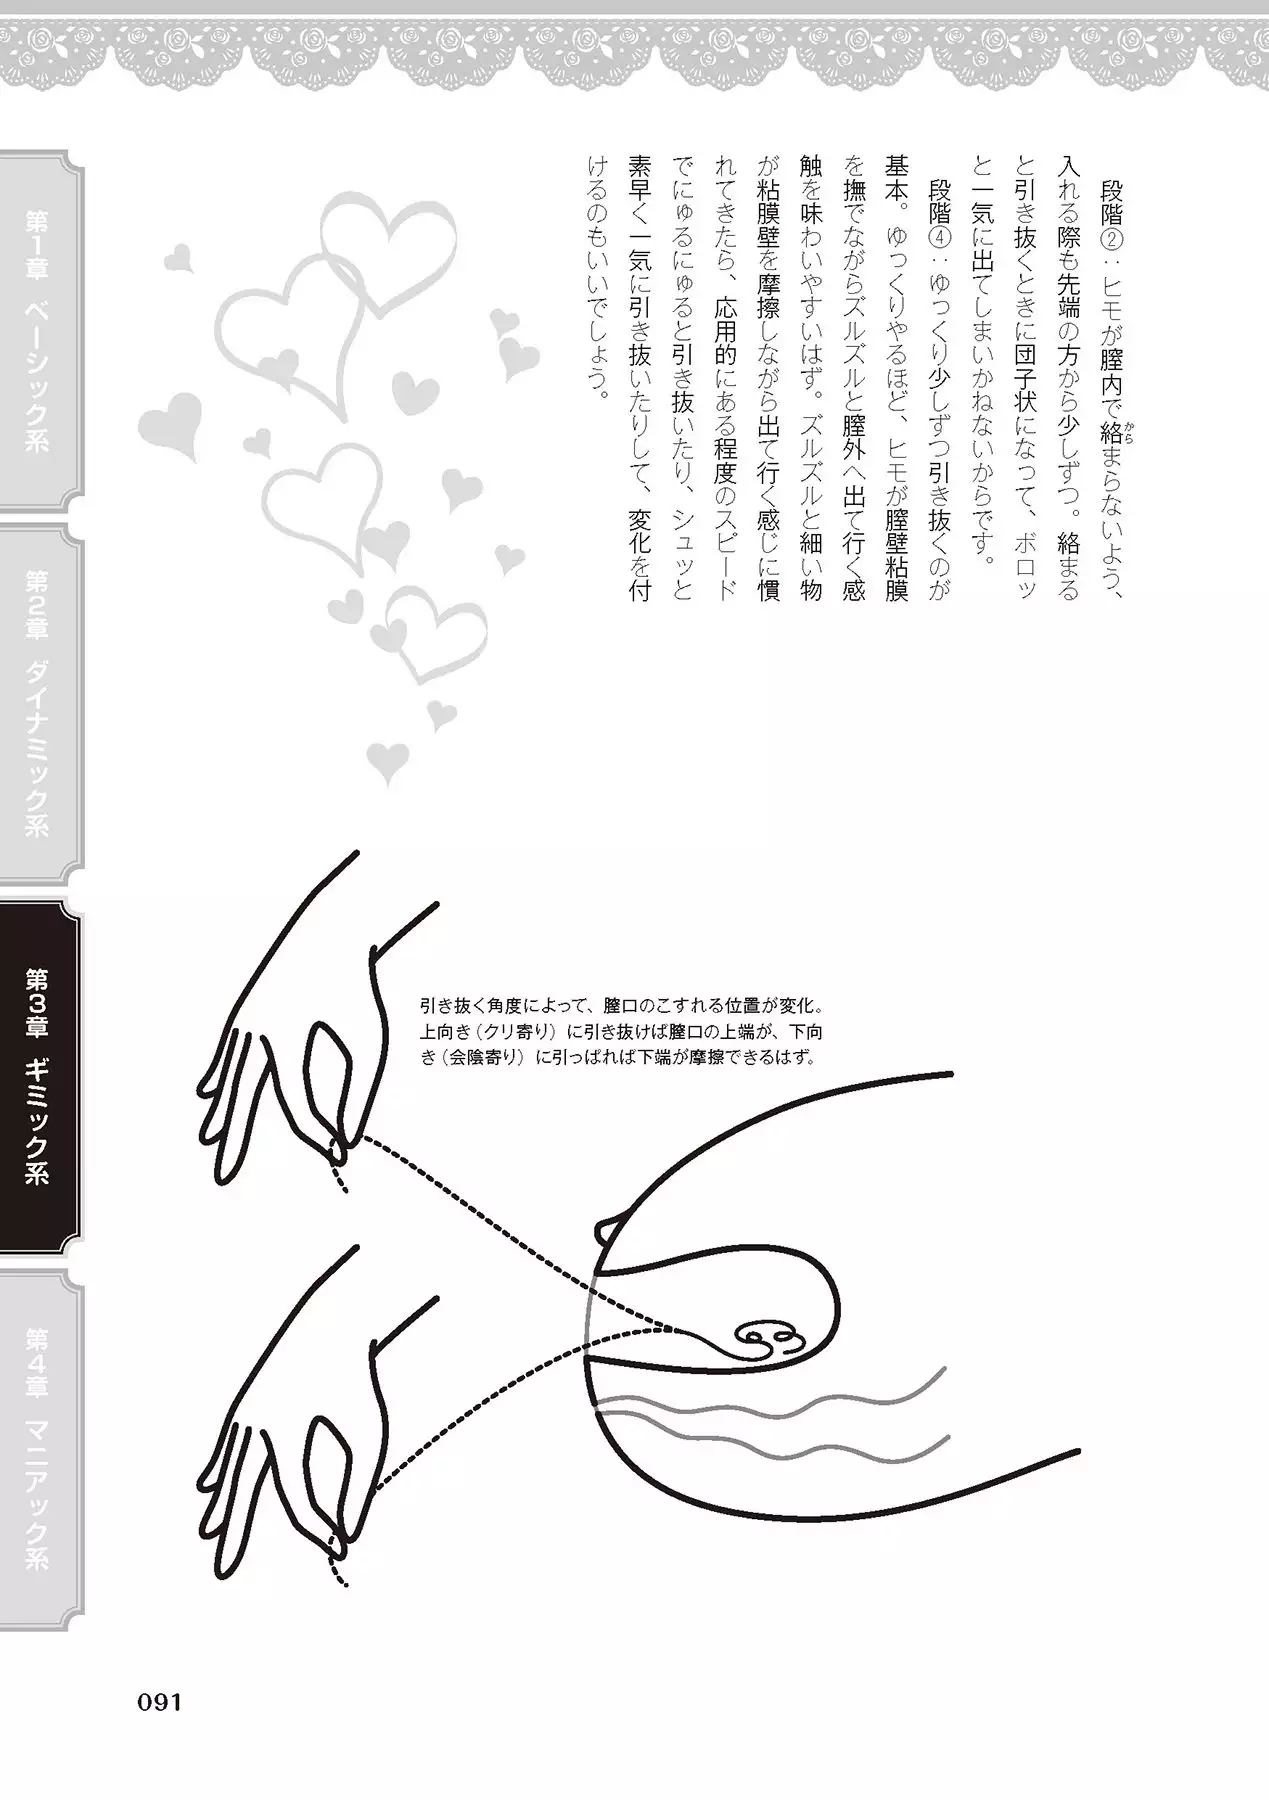 段階②：ヒモが膣内で絡まらないよう、
から
入れる際も先端の方から少しずつ。絡まる
と引き抜くときに団子状になって、ボロッ
と一気に出てしまいかねないからです。
段階④：ゆっくり少しずつ引き抜くのが
基本。ゆっくりやるほど、ヒモが膣壁粘膜
を撫でながらズルズルと膣外へ出て行く感
触を味わいやすいはず。ズルズルと細い物
が粘膜壁を摩擦しながら出て行く感じに慣
れてきたら、応用的にある程度のスピード
でにゅるにゅると引き抜いたり、シュッと
素早く一気に引き抜いたりして、変化を付
けるのもいいでしょう。
第1章 ベーシック系
第2章 ダイナミック系
第3章 ギミック系
第4章 マニアック系
引き抜く角度によって、膣口のこすれる位置が変化。
上向き（クリ寄り）に引き抜けば膣口の上端が、下向
き（会陰寄り）に引っぱれば下端が摩擦できるはず。
091